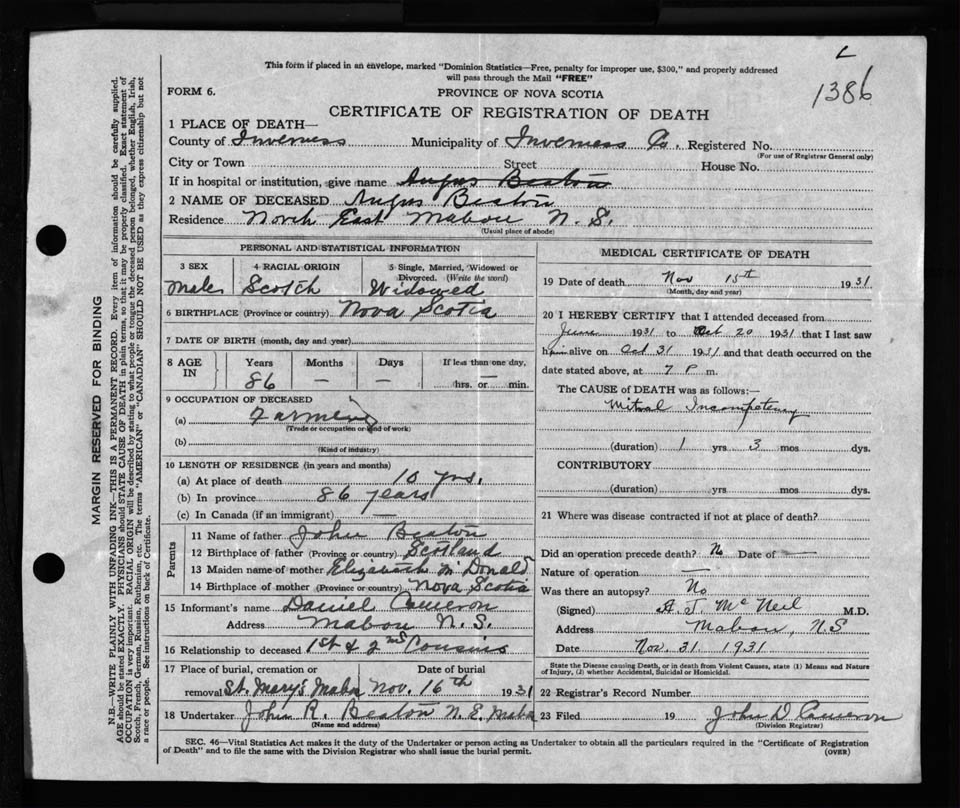 L
1386
This form if placed in an envelope, marked "Dominion Statistics—Free, penalty for improper use, $300," and properly addressed
will pass through the Mail "FREE"
FORM 6.
PROVINCE OF NOVA SCOTIA
CERTIFICATE OF REGISTRATION OF DEATH
1 PLACE OF DEATH—
County of Inverness Municipality of Inverness Co. Registered No.
(For use of Registrar General only)
City or Town Street House No.
If in hospital or institution, give name Angus Beaton
2 NAME OF DECEASED Angus Beaton
Residence North East Mabou N. S.
(Usual place of abode)
PERSONAL AND STATISTICAL INFORMATION
3 SEX 4 RACIAL ORIGIN 5 Single, Married, Widowed or
Divorced. (Write the word)
Male Scotch Widowed
6 BIRTHPLACE (Province or country) Nova Scotia
7 DATE OF BIRTH (month, day and year)
8 AGE IN Years Months Days If less than one day,
86 — — hrs. or — min.
9 OCCUPATION OF DECEASED
(a) Farmer
(Trade or occupation or kind of work)
(b)
(Kind of industry)
10 LENGTH OF RESIDENCE (in years and months)
(a) At place of death 10 yrs.
(b) In province 86 years
(c) In Canada (if an immigrant) —
Parents
11 Name of father John Beaton
12 Birthplace of father (Province or country) Scotland
13 Maiden name of mother Elizabeth McDonald
14 Birthplace of mother (Province or country) Nova Scotia
15 Informant's name Daniel Cameron
Address Mabou N.S.
16 Relationship to deceased 1st & 2nd Cousins
17 Place of burial, cremation or Date of burial
removal St. Mary's Mabou Nov. 16th 1931
18 Undertaker John R. Beaton N. E. Mabou
(Name and address)
MEDICAL CERTIFICATE OF DEATH
19 Date of death Nov 15th 1931
(Month, day and year)
20 I HEREBY CERTIFY that I attended deceased from
June 1931 to Oct 20 1931 that I last saw
him alive on Oct 31 1931 and that death occurred on the
date stated above, at 7 P m.
The CAUSE of DEATH was as follows:—
Mitral Incompetency
(duration) 1 yrs 3 mos dys.
CONTRIBUTORY
(duration) yrs. mos. dys.
21 Where was disease contracted if not at place of death?
Did an operation precede death? No Date of —
Nature of operation —
Was there an autopsy? No
(Signed) A. J. McNeil M.D.
Address Mabou, N S
Date Nov. 31 1931
State the Disease causing Death, or in death from Violent Causes, state (1) Means and Nature
of Injury, (2) whether Accidental, Suicidal or Homicidal.
22 Registrar's Record Number
23 Filed 19 John D Cameron
(Division Registrar)
SEC. 46—Vital Statistics Act makes it the duty of the Undertaker or person acting as Undertaker to obtain all the particulars required in the "Certificate of Registration
of Death" and to file the same with the Division Registrar who shall issue the burial permit.
(OVER)
MARGIN RESERVED FOR BINDING
N.B.—WRITE PLAINLY WITH UNFADING INK—THIS IS A PERMANENT RECORD. Every item of information should be carefully supplied.
AGE should be stated EXACTLY. PHYSICIANS should STATE CAUSE OF DEATH in plain terms, so that it may be properly classified. Exact statement of
OCCUPATION is very important. RACIAL ORIGIN will be described by stating to what people or tongue the deceased person belonged, whether English, Irish,
Scotch, French, German, Russian, Ruthenian, etc. The terms "AMERICAN" or "CANADIAN" SHOULD NOT BE USED as they express citizenship but not
a race or people. See instructions on back of Certificate.